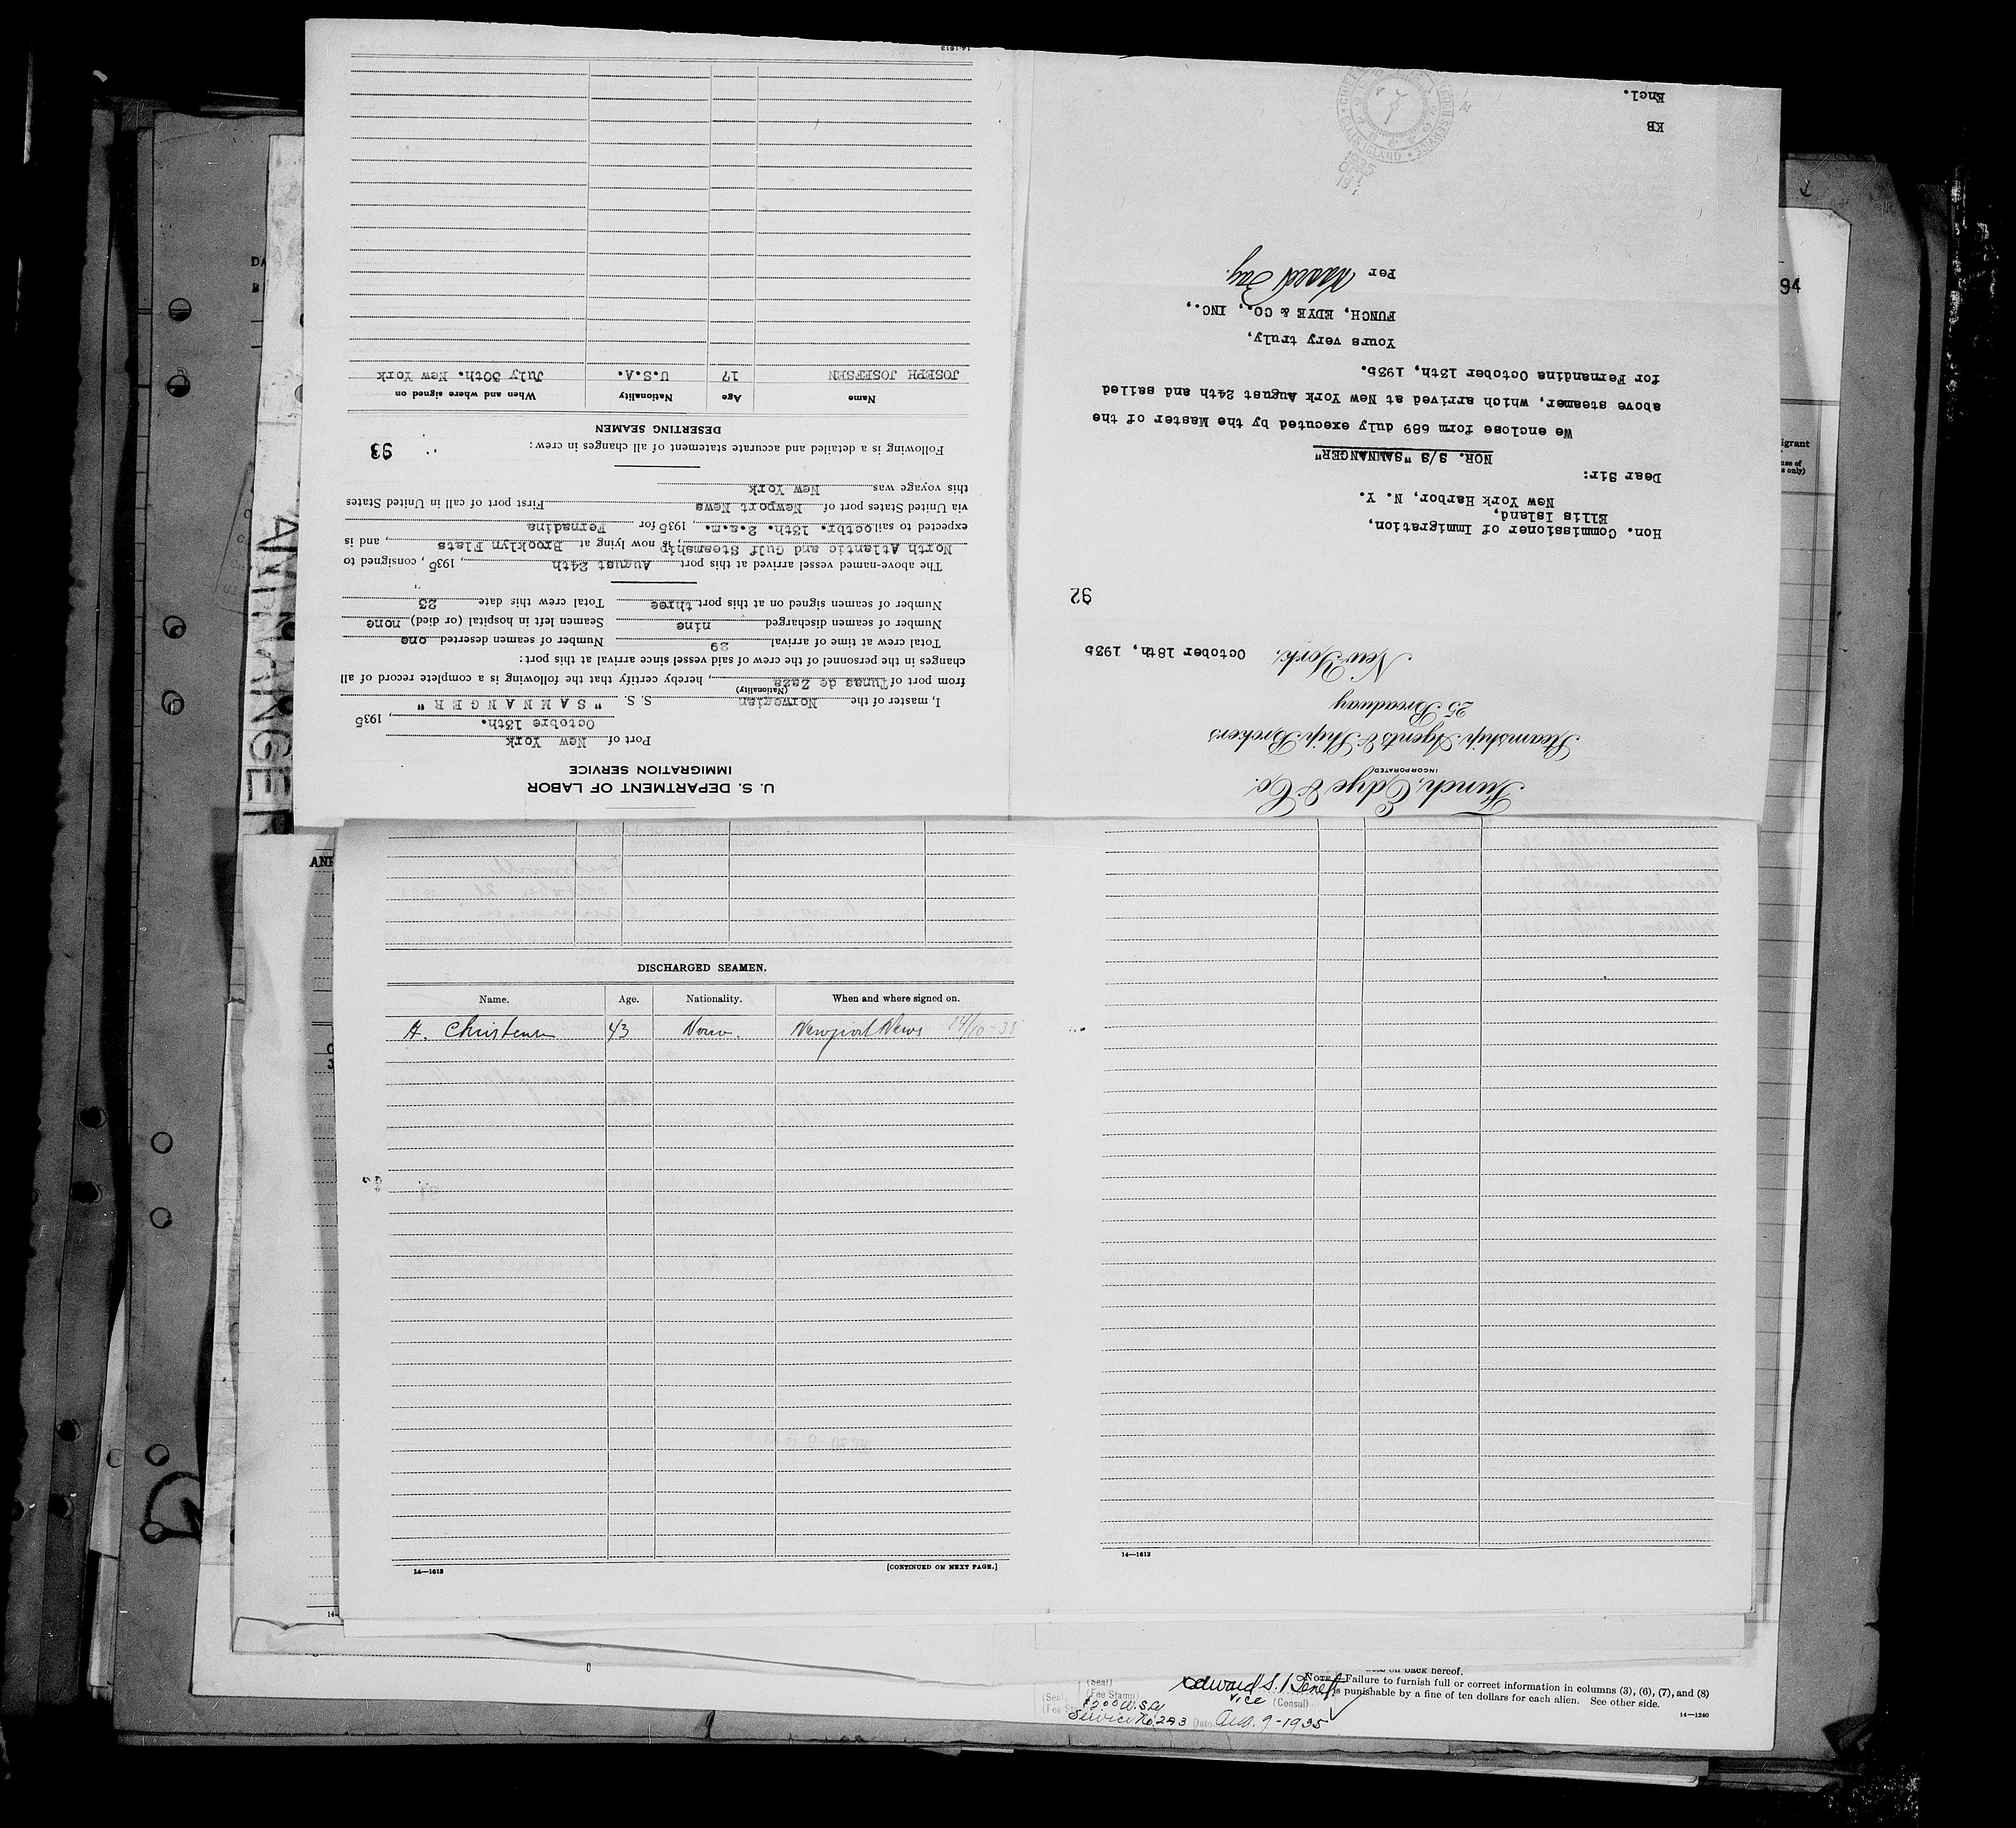 Funch, Edye & Co.
INCORPORATED
Steamship Agents & Ship Brokers
25 Broadway
New York, October 18th, 1935
92
Hon. Commissioner of Immigration,
Ellis Island,
New York Harbor, N. Y.
Dear Sir:
NOR. S/S "SAMNANGER"
We enclose form 689 duly executed by the Master of the
above steamer, which arrived at New York August 24th and sailed
for Fernandina October 13th, 1935.
Yours very truly,
FUNCH, EDYE & CO., INC.,
Per
KB
Encl.
U. S. DEPARTMENT OF LABOR
IMMIGRATION SERVICE
Port of New York
Octobre 13th. , 1935
I, master of the Norwegian S. S. "SAMNANGER"
(Nationality)
from port of Tunas de Zaza , hereby certify that the following is a complete record of all
changes in the personnel of the crew of said vessel since arrival at this port:
Total crew at time of arrival 29 Number of seamen deserted one
Number of seamen discharged nine Seamen left in hospital (or died) none
Number of seamen signed on at this port three Total crew this date 23
The above-named vessel arrived at this port August 24th , 1935 , consigned to
North Atlantic and Gulf Steamship , is now lying at Brooklyn Flats , and is
expected to sail octbr. 13th. 2.a.m. , 1935 for Fernadina
via United States port of Newport News First port of call in United States
this voyage was New York
Following is a detailed and accurate statement of all changes in crew:
93
DESERTING SEAMEN
Name Age Nationality When and where signed on
JOSEPH JOSEFSEN 17 U.S.A. July 30th. New York
14-1613
DISCHARGED SEAMEN.
Name. Age. Nationality. When and where signed on.
H. Christensen 43 Norw. Newport News 14/10-35
14—1613
[CONTINUED ON NEXT PAGE.]
14—1613
94
SAMNANGER
on back hereof.
NOTE.—Failure to furnish full or correct information in columns (3), (6), (7), and (8)
is punishable by a fine of ten dollars for each alien. See other side.
14—1240
(Seal)
(Fee Stamp)
Vice (Consul)
Service No. 243 Date Aug. 9-1935